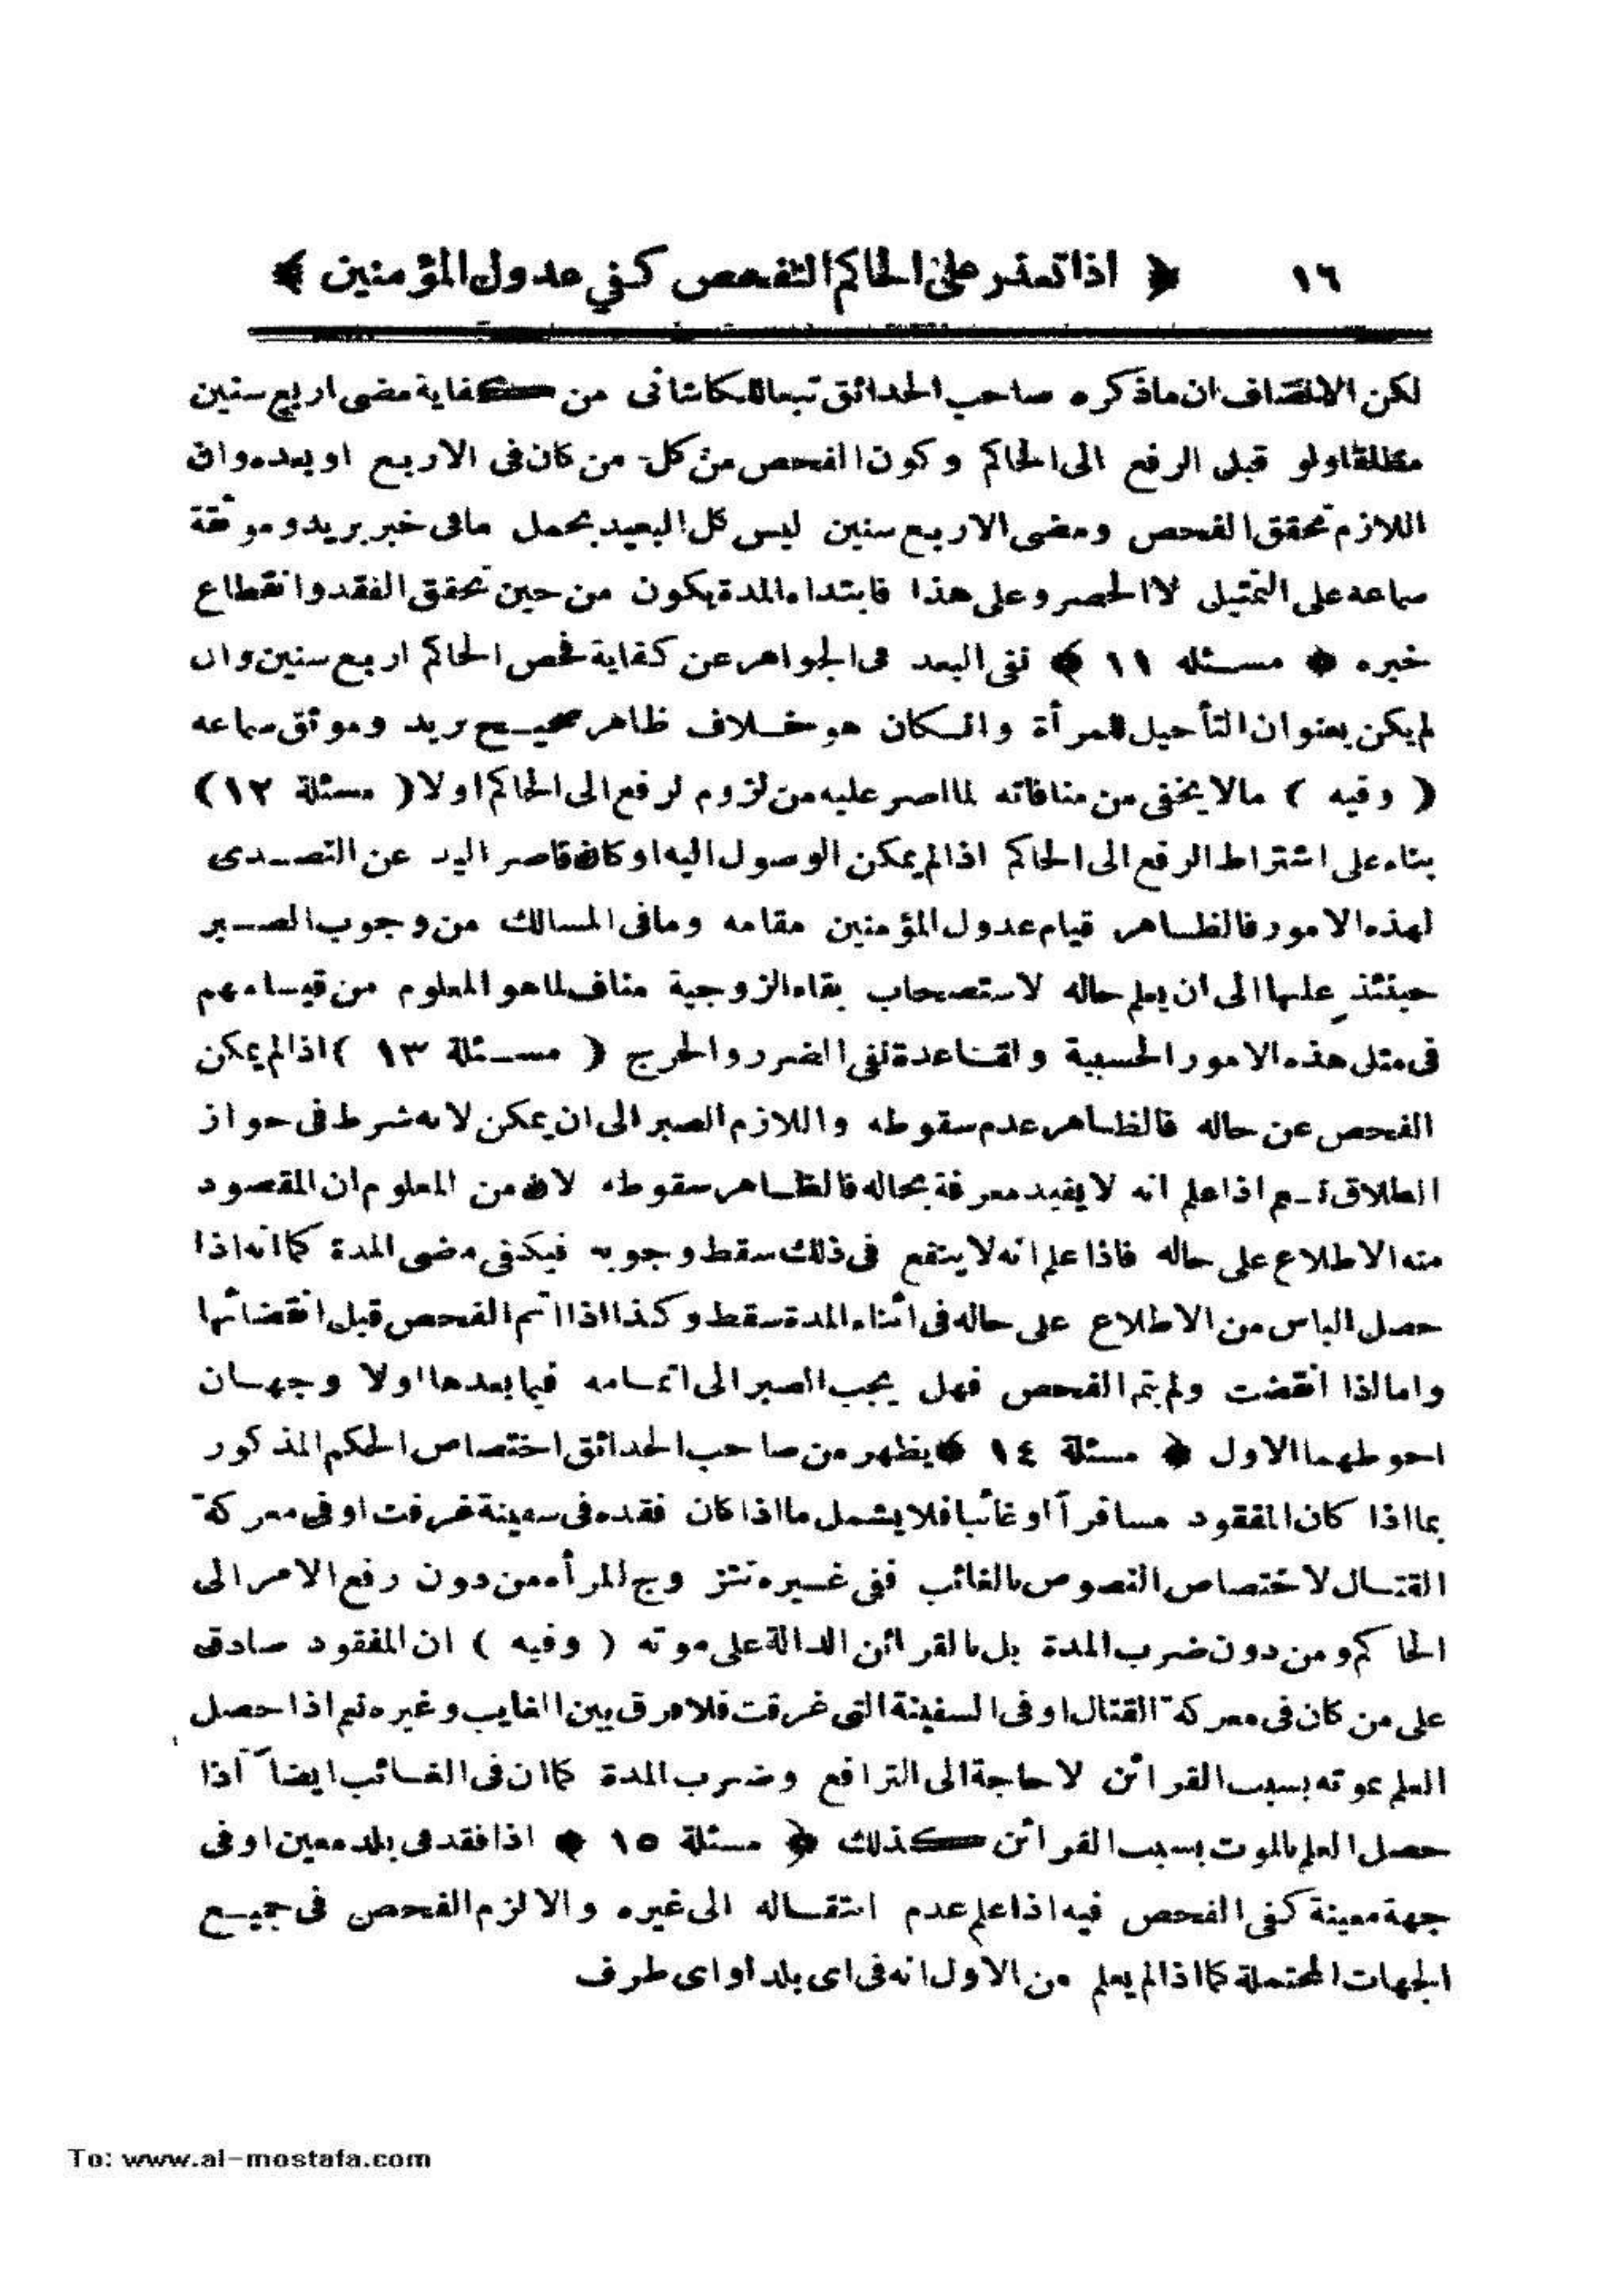 ١٦ ﴿ اذا تعذر على الحاكم التفحص كفي عدول المؤمنين ﴾
لكن الانصاف ان ماذكره صاحب الحدائق تبعا للكاشانى من كفاية مضى اربع سنين
مطلقا ولو قبل الرفع الى الحاكم وكون الفحص من كل من كان فى الاربع او بعده وان
اللازم تحقق الفحص ومضى الاربع سنين ليس كل البعيد بحمل مافى خبر بريد وموثقة
سماعه على التمثيل لا الحصر وعلى هذا فابتداء المدة يكون من حين تحقق الفقد وانقطاع
خبره ﴿ مسئله ١١ ﴾ نفى البعد فى الجواهر عن كفاية فحص الحاكم اربع سنين وان
لم يكن بعنوان التأجيل للمرأة وانكان هو خلاف ظاهر صحيح بريد وموثق سماعه
( وفيه ) مالا يخفى من منافاته لما اصر عليه من لزوم لرفع الى الحاكم اولا ( مسئلة ١٢ )
بناء على اشتراط الرفع الى الحاكم اذا لم يمكن الوصول اليه او كان قاصر اليد عن التصدى
لهذه الامور فالظاهر قيام عدول المؤمنين مقامه ومافى المسالك من وجوب الصبر
حينئذ عليها الى ان يعلم حاله لاستصحاب بقاء الزوجية مناف لما هو المعلوم من قيامهم
فى مثل هذه الامور الحسبية ولقاعدة نفى الضرر والحرج ( مسئلة ١٣ ) اذا لم يمكن
الفحص عن حاله فالظاهر عدم سقوطه واللازم الصبر الى ان يمكن لانه شرط فى جواز
الطلاق نعم اذا علم انه لا يفيد معرفة بحاله فالظاهر سقوطه لان من المعلوم ان المقصود
منه الاطلاع على حاله فاذا علم انه لا ينفع فى ذلك سقط وجوبه فيكفى مضى المدة كما انه اذا
حصل الياس من الاطلاع على حاله فى اثناء المدة سقط وكذا اذا تم الفحص قبل انقضائها
واما اذا انقضت ولم يتم الفحص فهل يجب الصبر الى اتمامه فيما بعدها اولا وجهان
احوطهما الاول ﴿ مسئلة ١٤ ﴾ يظهر من صاحب الحدائق اختصاص الحكم المذكور
بما اذا كان المفقود مسافرا او غائبا فلا يشمل ما اذا كان فقده فى سفينة غرقت او فى معركة
القتال لاختصاص النصوص بالغائب ففى غيره تتزوج المرأه من دون رفع الامر الى
الحاكم ومن دون ضرب المدة بل بالقرائن الدالة على موته ( وفيه ) ان المفقود صادق
على من كان فى معركة القتال او فى السفينة التى غرقت فلا فرق بين الغايب وغيره نعم اذا حصل
العلم بموته بسبب القرائن لا حاجة الى الترافع وضرب المدة كما ان فى الغائب ايضاً اذا
حصل العلم بالموت بسبب القرائن كذلك ﴿ مسئلة ١٥ ﴾ اذا فقد فى بلد معين او فى
جهة معينة كفى الفحص فيه اذا علم عدم انتقاله الى غيره والا لزم الفحص فى جميع
الجهات المحتملة كما اذا لم يعلم من الاول انه فى اى بلد او اى طرف
To: www.al-mostafa.com